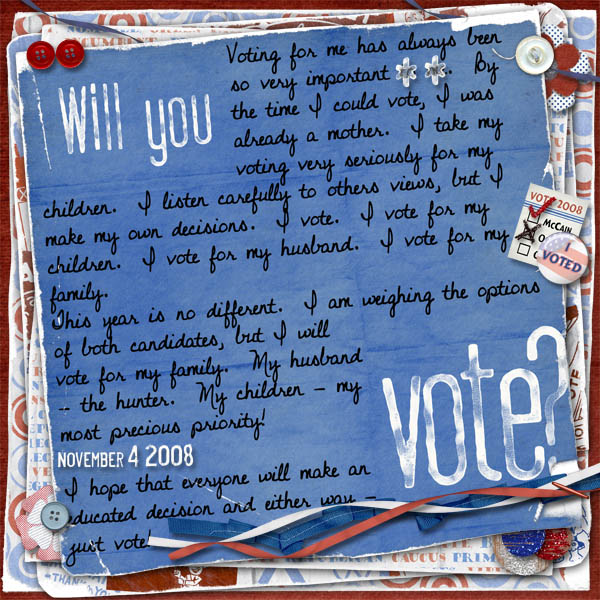 Will you
Voting for me has always been
so very important. By
the time I could vote, I was
already a mother. I take my
voting very seriously for my
children. I listen carefully to others views, but I
make my own decisions. I vote. I vote for my
children. I vote for my husband. I vote for my
family.
This year is no different. I am weighing the options
of both candidates, but I will
vote for my family. My husband
– the hunter. My children – my
most precious priority!
NOVEMBER 4 2008
I hope that everyone will make an
educated decision and either way –
just vote!
vote?
VOTE 2008
McCAIN
I
VOTED
CAUCUS PRIM